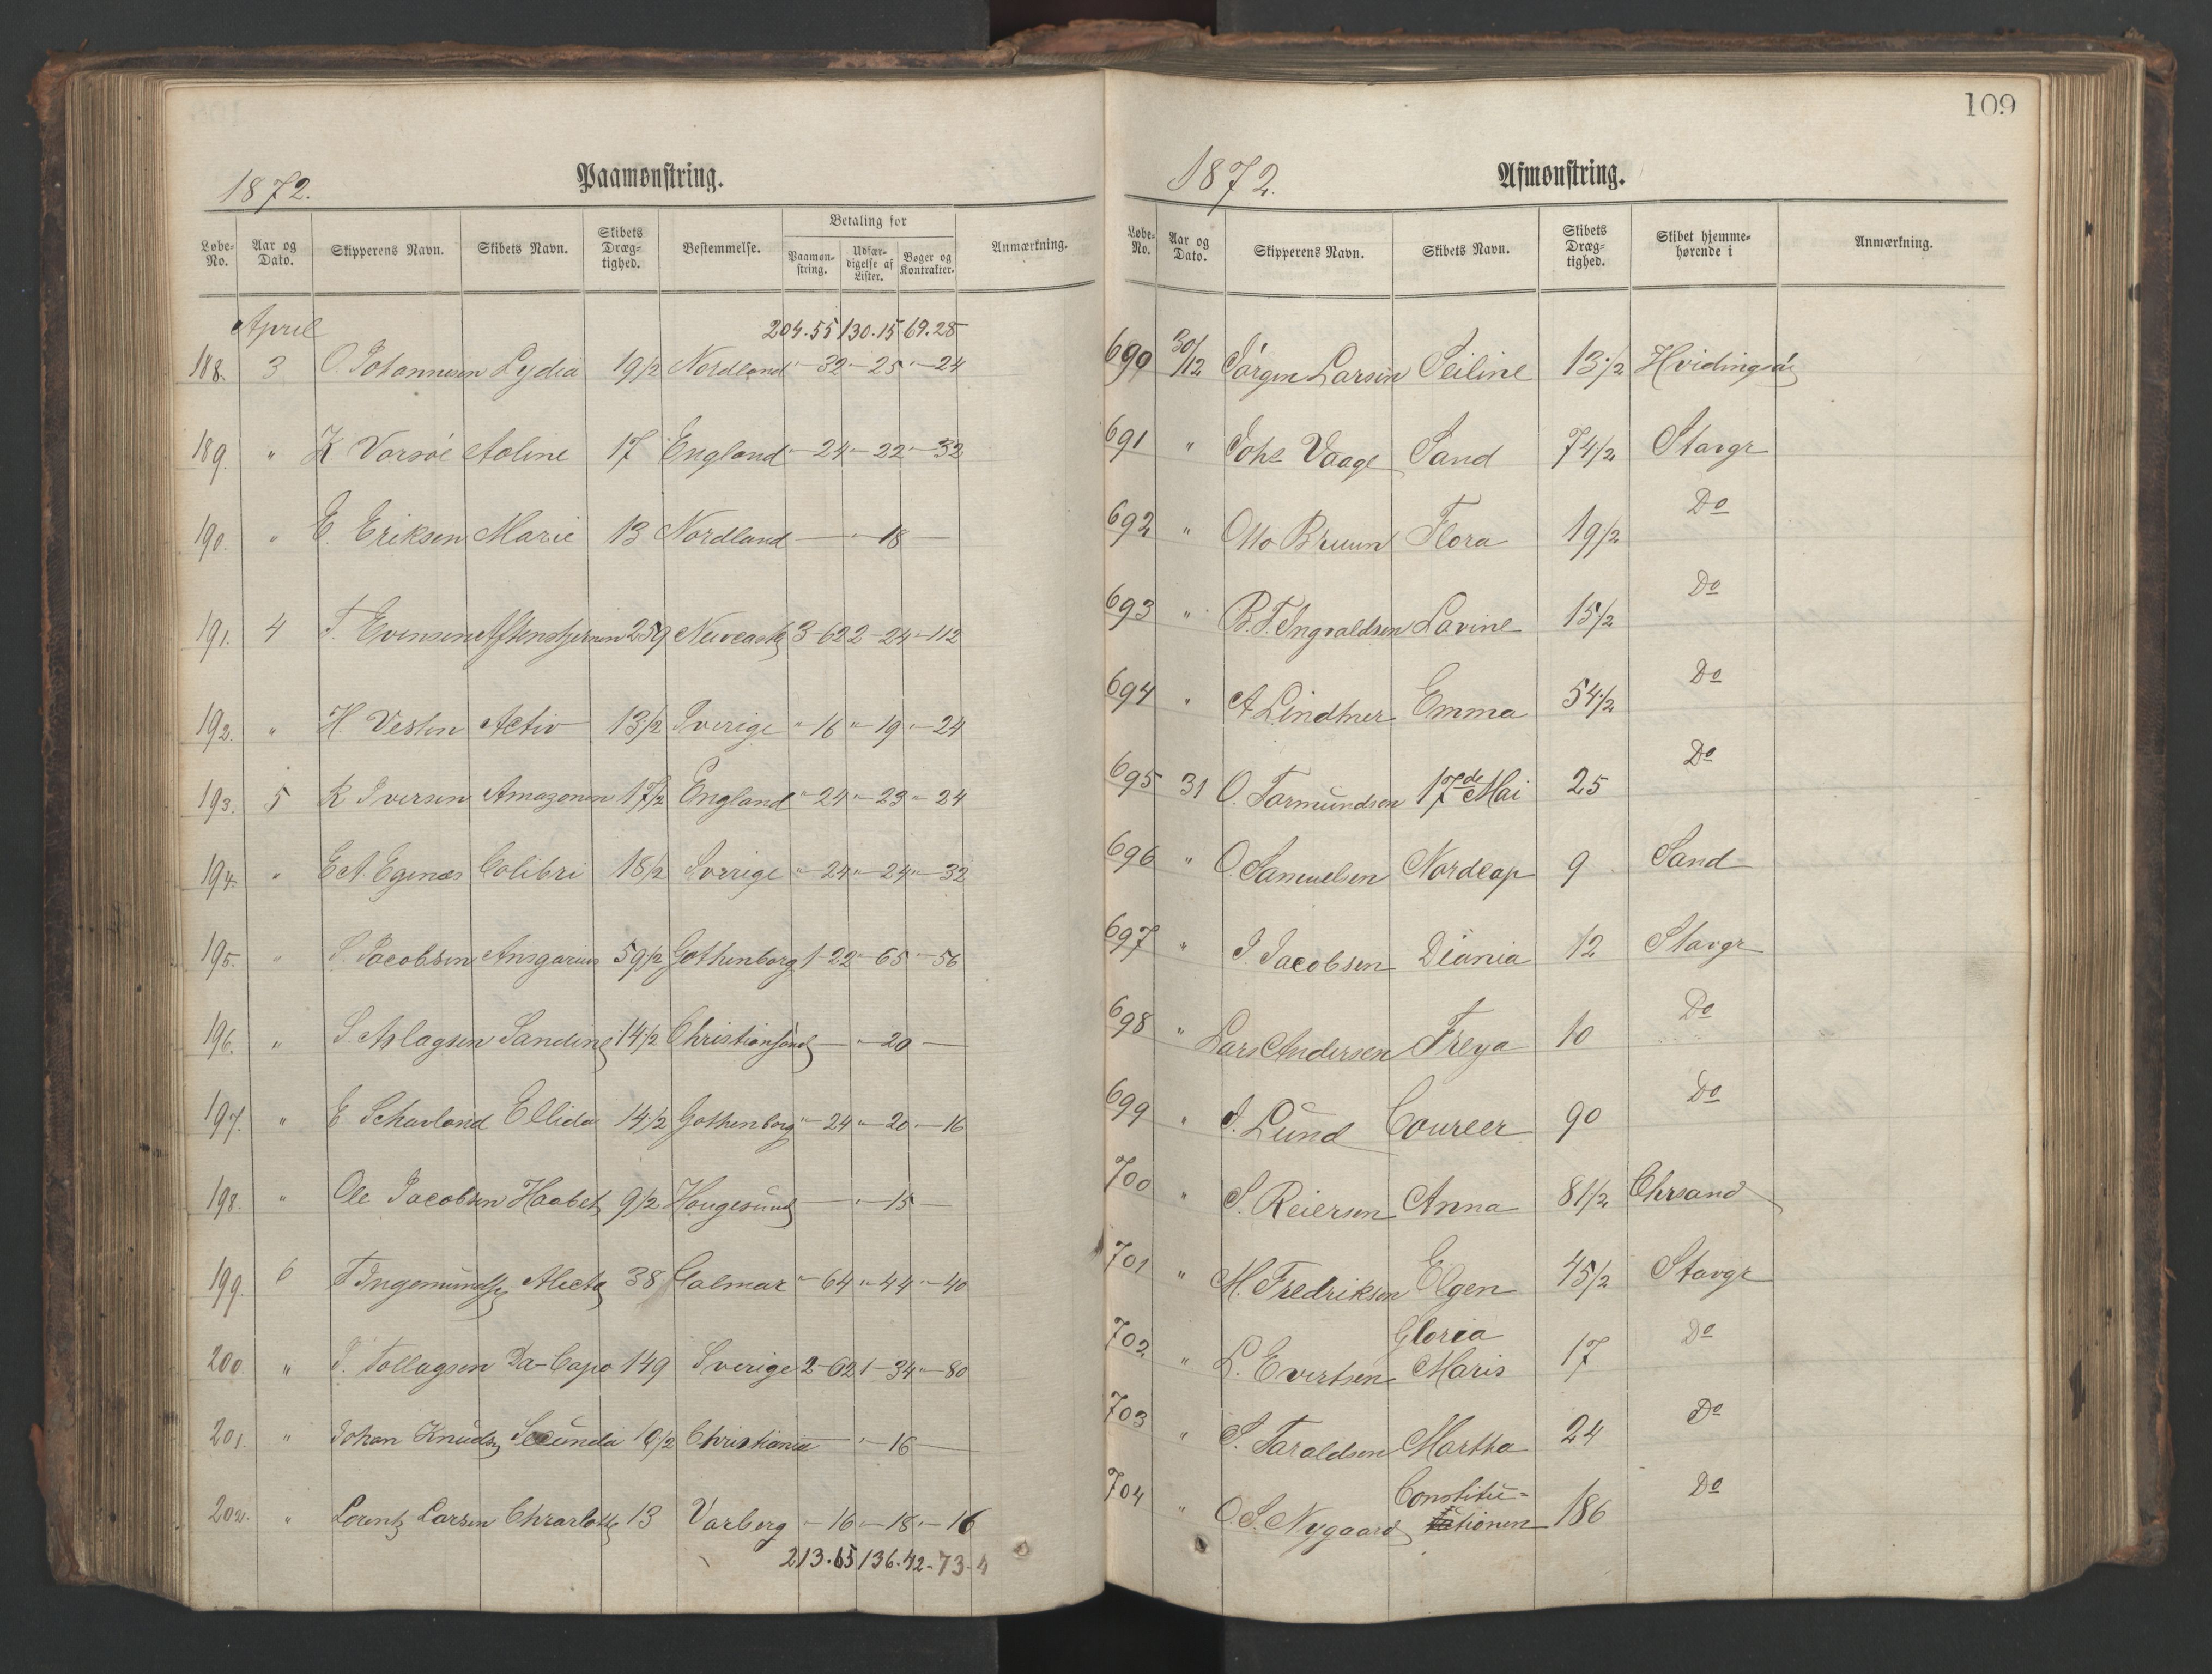 1872.
Paamønstring.
Løbe-No.
Aar og Dato.
Skipperens Navn.
Skibets Navn.
Skibets Dræg-tighed.
Bestemmelse.
Betaling for
Paamøn-string.
Udfær-digelse af Lister.
Bøger og Kontrakter.
Anmærkning.
April 204.55 130.15 69.28
188. 3 O. Johannesen Lydia 19 1/2 Nordland " - 32 " - 25 " - 24
189. " K Vorsöe Aoline 17 England " - 24 " - 22 " - 32
190. " E. Eriksen Marie 13 Nordland — " - 18 —
191. 4 T. Evensen Aftenstjernen 259 Newcastle 3 - 62 2 - 24 - 112
192. " H Vestin Activ 13 1/2 Sverige " - 16 " - 19 " - 24
193. 5 K Iversen Amazonen 17 1/2 England " - 24 " - 23 " - 24
194. " E A. Egenæs Colibri 18 1/2 Sverige " - 24 " - 24 " - 32
195. " S. Jacobsen Ansgarius 59 1/2 Gothenborg 1 - 22 " - 65 " - 56
196. " S. Aslagsen Sandine 14 1/2 Christiansand — " - 20 —
197. " E Schavland Ellida 14 1/2 Gothenborg " - 24 " - 20 " - 16
198. " Ole Jacobsen Haabet 9 1/2 Hougesund — " - 15 —
199. 6 T Ingemundsen Alecta 38 Calmar " - 64 " - 44 " - 40
200. " T. Tollagsen Da-Capo 149 Sverige 2 - 62 1 - 34 " - 80
201. " Johan Knudsen Secunda 10 1/2 Christiania — " - 16 —
202. " Lorentz Larsen Chrarlotte 13 Varberg " - 16 " - 18 " - 16
213.65 136.42 - 73-4
109
1872.
Afmønstring.
Løbe-No.
Aar og Dato.
Skipperens Navn.
Skibets Navn.
Skibets Dræg-tighed.
Skibet hjemme-hørende i
Anmærkning.
690 30/12 Jörgen Larsen Seiline 13 1/2 Hvidingsöe
691 " Johs Vaage Sand 74 1/2 Stavgr
692 " Otto Bruun Flora 19 1/2 Do
693 " B. T. Ingvaldsen Lavine 15 1/2 Do
694 " A Lindtner Emma 54 1/2 Do
695 31 O. Tormundsen 17de Mai 25 Do
696 " O. Samuelsen Nordcap 9 Sand
697 " J. Jacobsen Diania 12 Stavgr
698 " Lars Andersen Freya 10 Do
699 " J. Lund Coureer 90 Do
700 " S. Reiersen Anna 81 1/2 Chrsand
701 " M. Fredriksen Elgen 45 1/2 Stavgr
702 " L. Evertsen Gloria Maris 17 Do
703 " S. Taraldsen Martha 24 Do
704 " O. S. Nygaard Constitu=tionen 186 Do